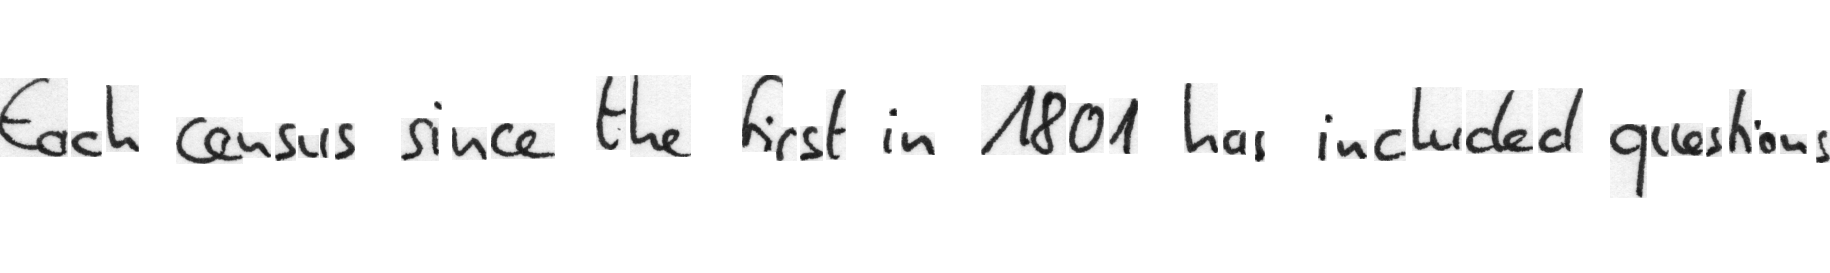 Each census since the first in 1801 has included questions